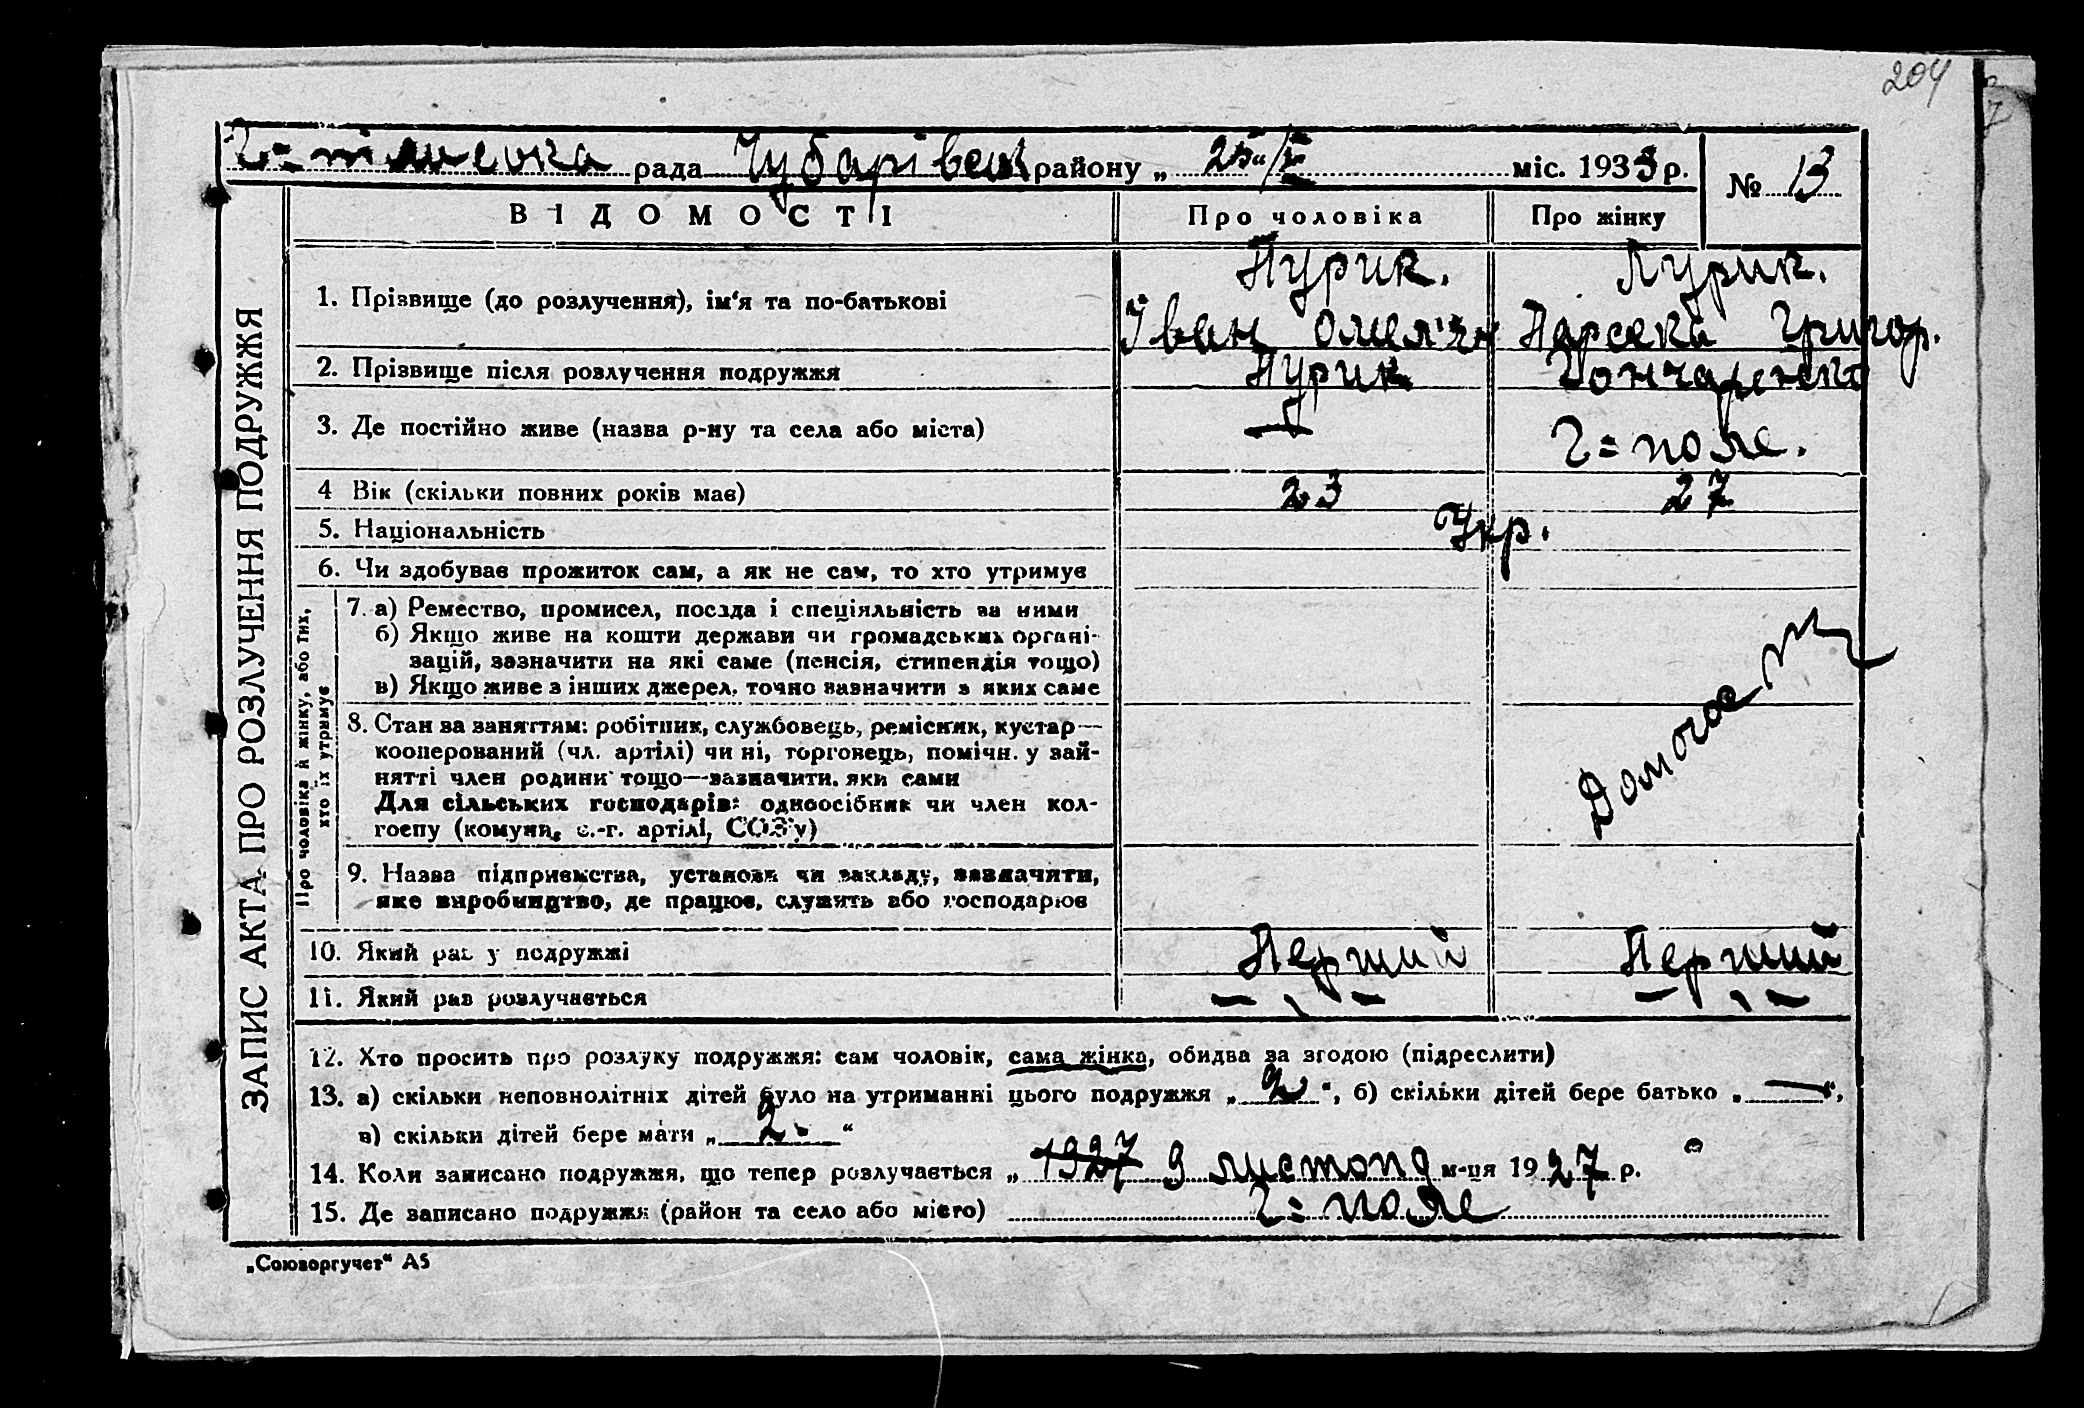 204
Г=пілиєвка рада Чубарівськ району „ 25“/V міс. 1933 р. № 13
ВІДОМОСТІ Про чоловіка Про жінку
ЗАПИС АКТА ПРО РОЗЛУЧЕННЯ ПОДРУЖЖЯ
1. Прізвище (до розлучення), ім'я та по-батькові
Пурик. Пурик.
Іван Омел'ян Парсека Григор.
2. Прізвище після розлучення подружжя Пурик Гончаренко
3. Де постійно живе (назва р-ну та села або міста) Г=поле.
4 Вік (скільки повних років має) 23 27
5. Національність Укр.
6. Чи здобував прожиток сам, а як не сам, то хто утримує
Про чоловіка й жінку, або тих,
хто їх утримує
7. а) Ремество, промисел, посада і спеціяльність за ними
б) Якщо живе на кошти держави чи громадських органі-
зацій, зазначити на які саме (пенсія, стипендія тощо)
в) Якщо живе з інших джерел, точно зазначити з яких саме
8. Стан за заняттям: робітник, службовець, ремісник, кустар—
кооперований (чл. артілі) чи ні, торговець, помічн. у зай-
нятті член родини тощо—зазначити, яки сами
Для сільських господарів: одноосібник чи член кол-
госпу (комуни, с.-г. артілі, СОЗ'у)
Домогос
9. Назва підприємства, установи чи закладу, зазначити,
яке виробництво, де працює, служить або господарює
10. Який раз у подружжі Перший Перший
11. Який раз розлучається — „ — — „ —
12. Хто просить про розлуку подружжя: сам чоловік, сама жінка, обидва за згодою (підреслити)
13. а) скільки неповнолітніх дітей було на утриманні цього подружжя „ 2 “, б) скільки дітей бере батько „ — “,
в) скільки дітей бере мати „ 2. “
14. Коли записано подружжя, що тепер розлучається „ 1927 9 листопа м-ця 1927 р.
15. Де записано подружжя (район та село або місто) Г=поле
„Союзоргучет“ А5